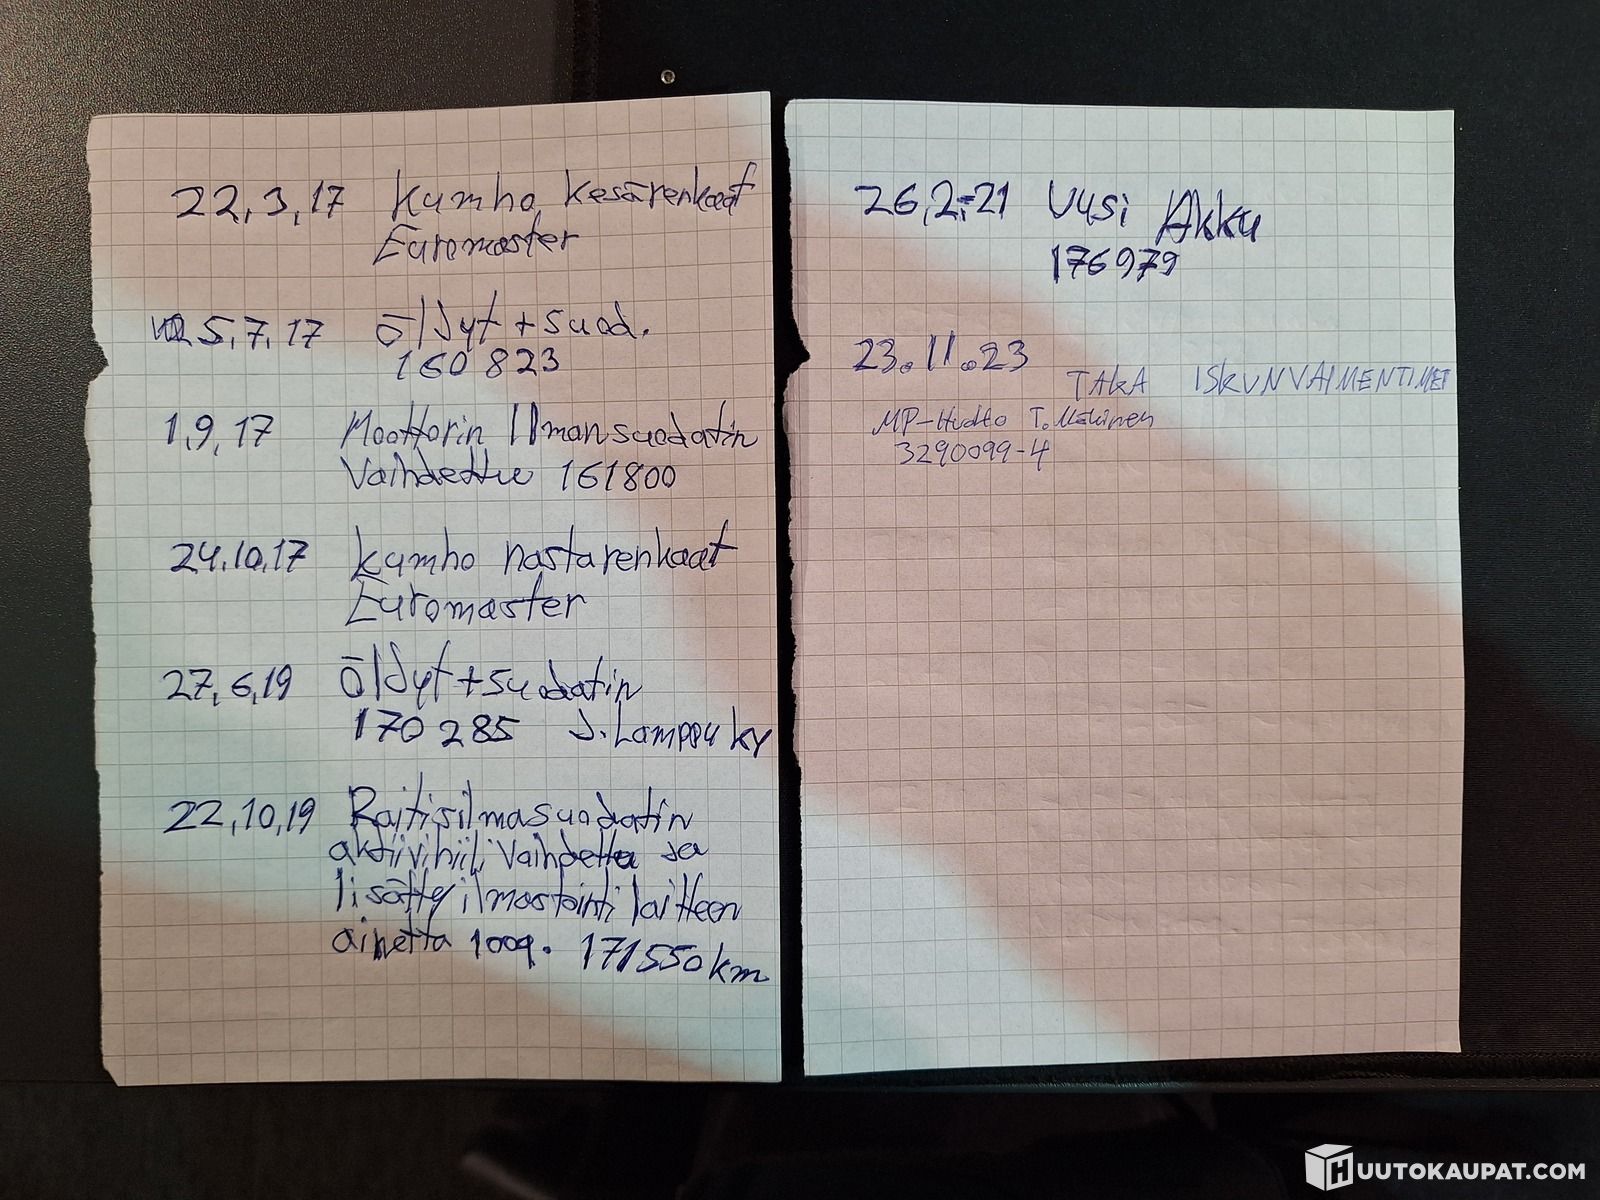 22,3,17 Kumho kesärenkaat
Euromaster
5,7,17 öljyt + suod.
160 823
1,9,17 Moottorin Ilmansuodatin
Vaihdettu 161800
24.10,17 Kumho nastarenkaat
Euromaster
27,6,19 öljyt + suodatin
170 285 J. Lamppu ky
22,10,19 Raitisilmasuodatin
aktiivihiili Vaihdettu ja
lisätty ilmastointi laitteen
ainetta 100g. 171550 km
26,2,-21 Uusi Akku
176979
23.11.23 TAKA ISKUNVAIMENTIMET
MP-Huolto T. Mäkinen
3290099-4
HUUTOKAUPAT.COM